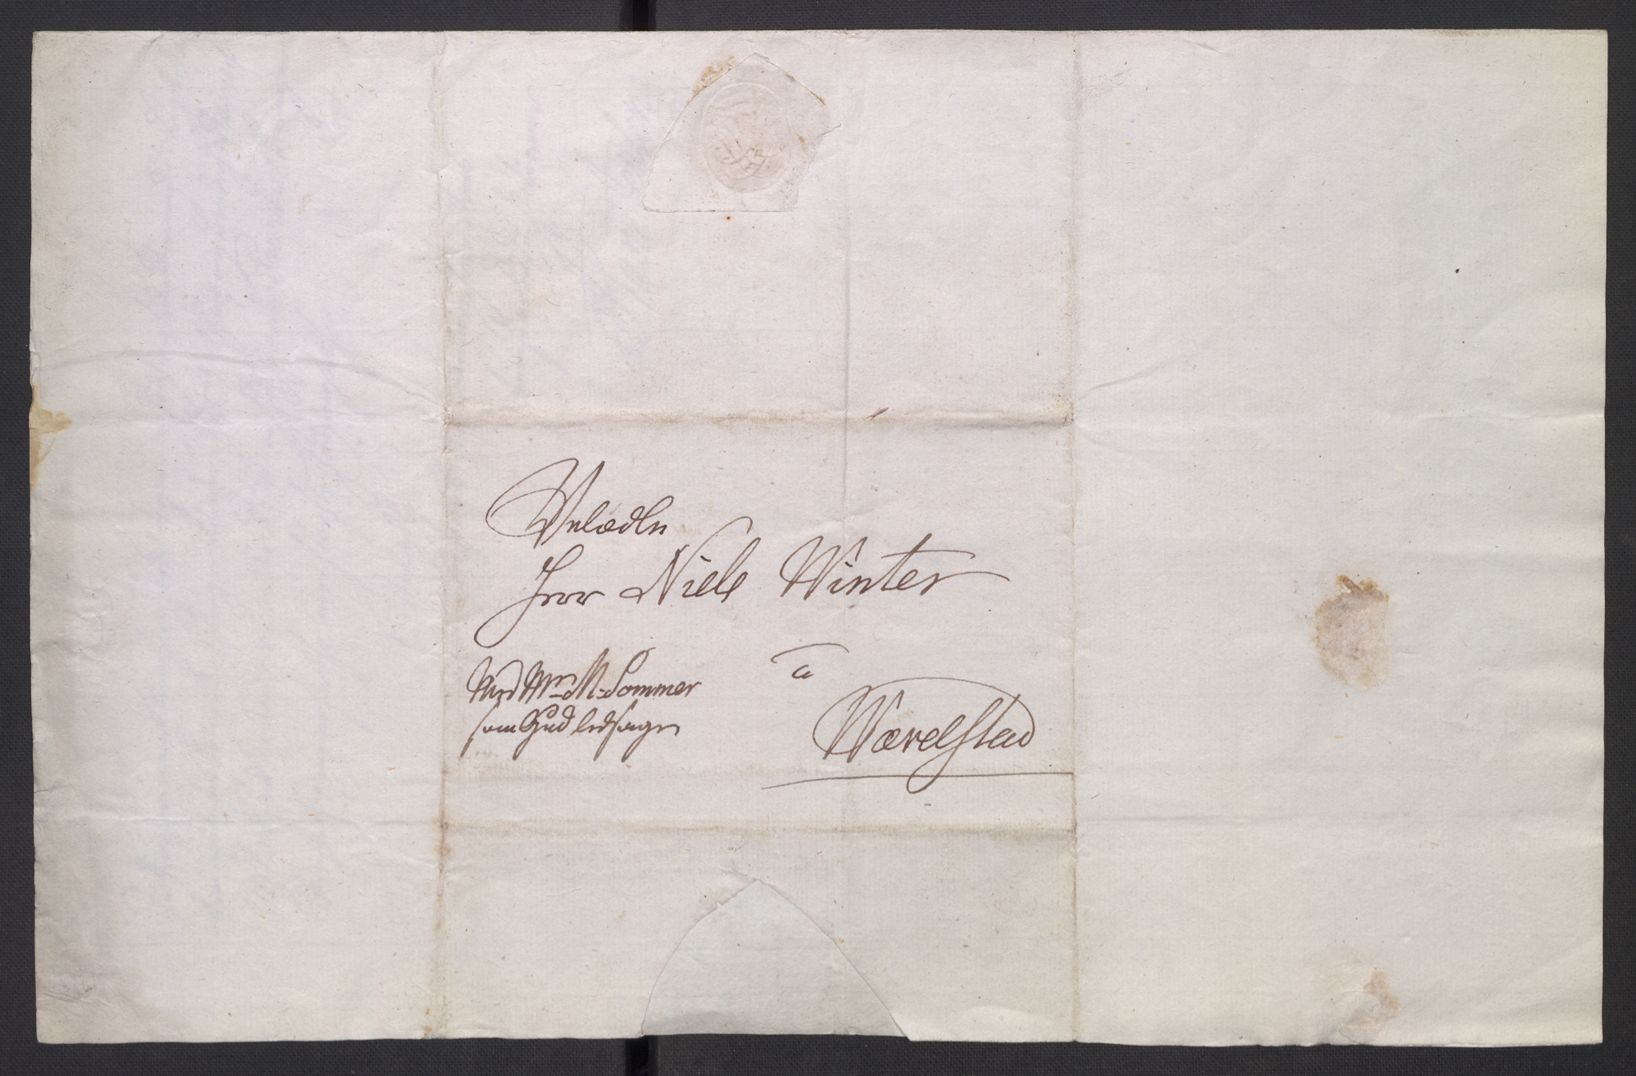 Velædle
Herr Niels Winter
Med Mr. M. Sommer
som Gud ledsage
a
Wærelstad